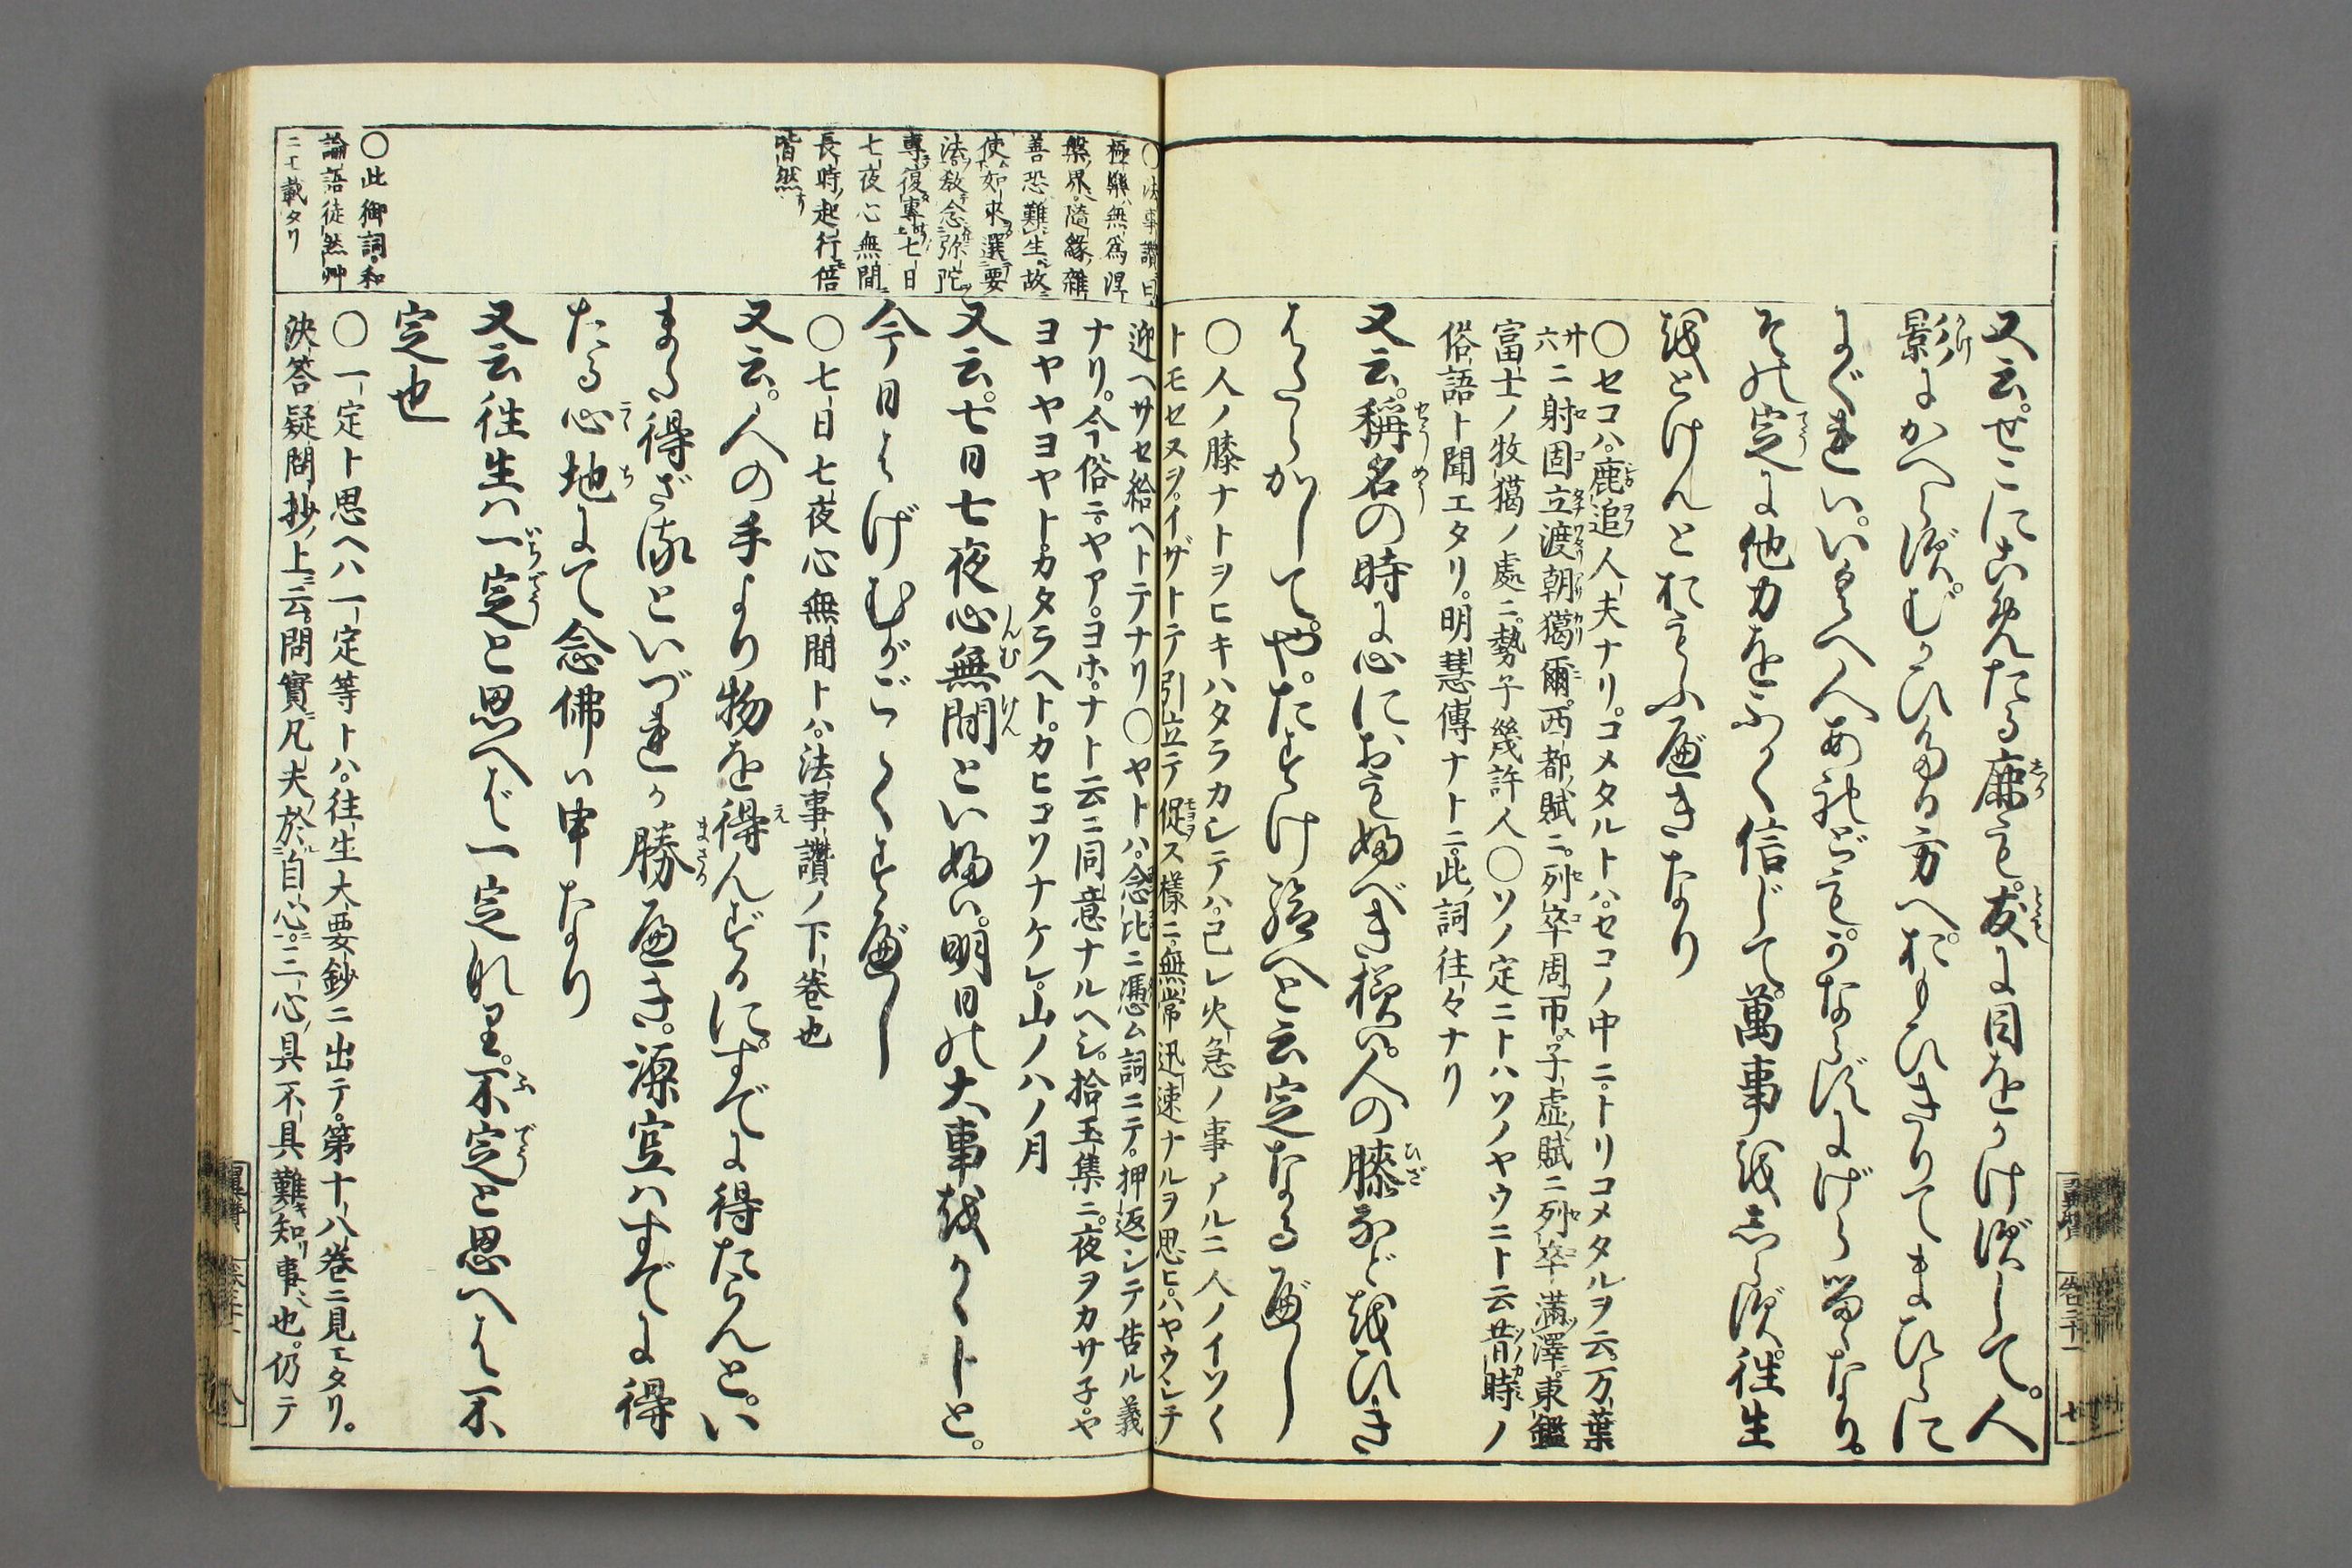 又云。せこにこめたる鹿も。友に目をかけずして。人
影にかへらず。むかひたる方へ。おもひきりてまひらに
にぐれハ。いくへ人あれども。かならずにげらるゝなり。
その定に他力をふかく信じて。萬事をしらず。往生
をとけんとおもふべきなり
〇セコハ。鹿追人夫ナリ。コメタルトハ。セコノ中ニ。トリコメタルヲ云。万葉
六ニ射固立渡朝獦爾。西都賦ニ。列卒周帀。子虚賦ニ列卒滿澤。東鑑廿
富士ノ牧獦ノ處ニ。勢子幾許人〇ソノ定ニトハソノヤウニト云昔時ノ
俗語ト聞エタリ。明慧傳ナトニ。此詞往々ナリ
又云。稱名の時に心におもふべき樣ハ。人の膝などをひき
はたらかして。や。たすけ給へと云定なるべし
〇人ノ膝ナトヲヒキハタラカシテハ。己レ火急ノ事アルニ人ノイツく
トモセヌヲ。イザトテ引立テ促ス樣ニ。無常迅速ナルヲ思ヒ。ハヤウシチ
〇法事讚曰
極樂無爲涅
槃界。隨緣雜
善恐難生。故
使如來選要
法。敎念弥陀
專復專。七日
七夜心無間
長時起行倍
皆然
〇此御詞。和
論語徒然艸
ニモ載タリ
迎ヘサセ給ヘトテナリ〇ヤトハ。念比ニ憑ム詞ニテ。押返シテ告ル義
ナリ。今俗ニ。ヤア。ヨホ。ナト云ニ同意ナルヘシ。拾玉集ニ。夜ヲカサ子。ヤ
ヨヤヤヨヤト。カタラヘト。カヒコソナケレ。山ノハノ月
又云。七日七夜心無間といふハ。明日の大事をかゝじと。
今日はげむがごくすべし
〇七日七夜心無間トハ。法事讚ノ下卷也
又云。人の手より物を得んずるに。すでに得たらんと。い
まだ得ざるといづれか勝べき。源空ハすでに得
たる心地にて念佛ハ申なり
又云往生ハ一定と思へば一定なり。不定と思へは不
定也
〇一定ト思ヘハ一定等トハ。往生大要鈔ニ出テ。第十八卷ニ見エタリ。
決答疑問抄上云。問實凡夫於自心。三心具不具難知事也。仍テ